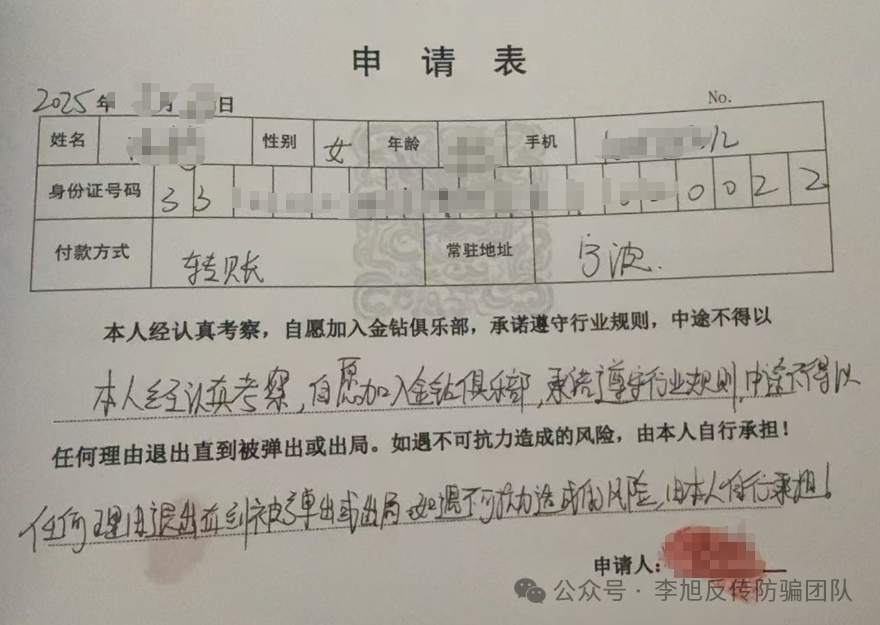 申 请 表
2025年 月 日
No.
姓名 性别 女 年龄 手机 12
身份证号码 33 0022
付款方式 转账 常驻地址 宁波.
本人经认真考察，自愿加入金钻俱乐部，承诺遵守行业规则，中途不得以
本人经认真考察，自愿加入金钻俱乐部，承诺遵守行业规则，中途不得以
任何理由退出直到被弹出或出局。如遇不可抗力造成的风险，由本人自行承担！
任何理由退出直到被弹出或出局 如遇不可抗力造成的风险，由本人自行承担！
申请人：
公众号 · 李旭反传防骗团队